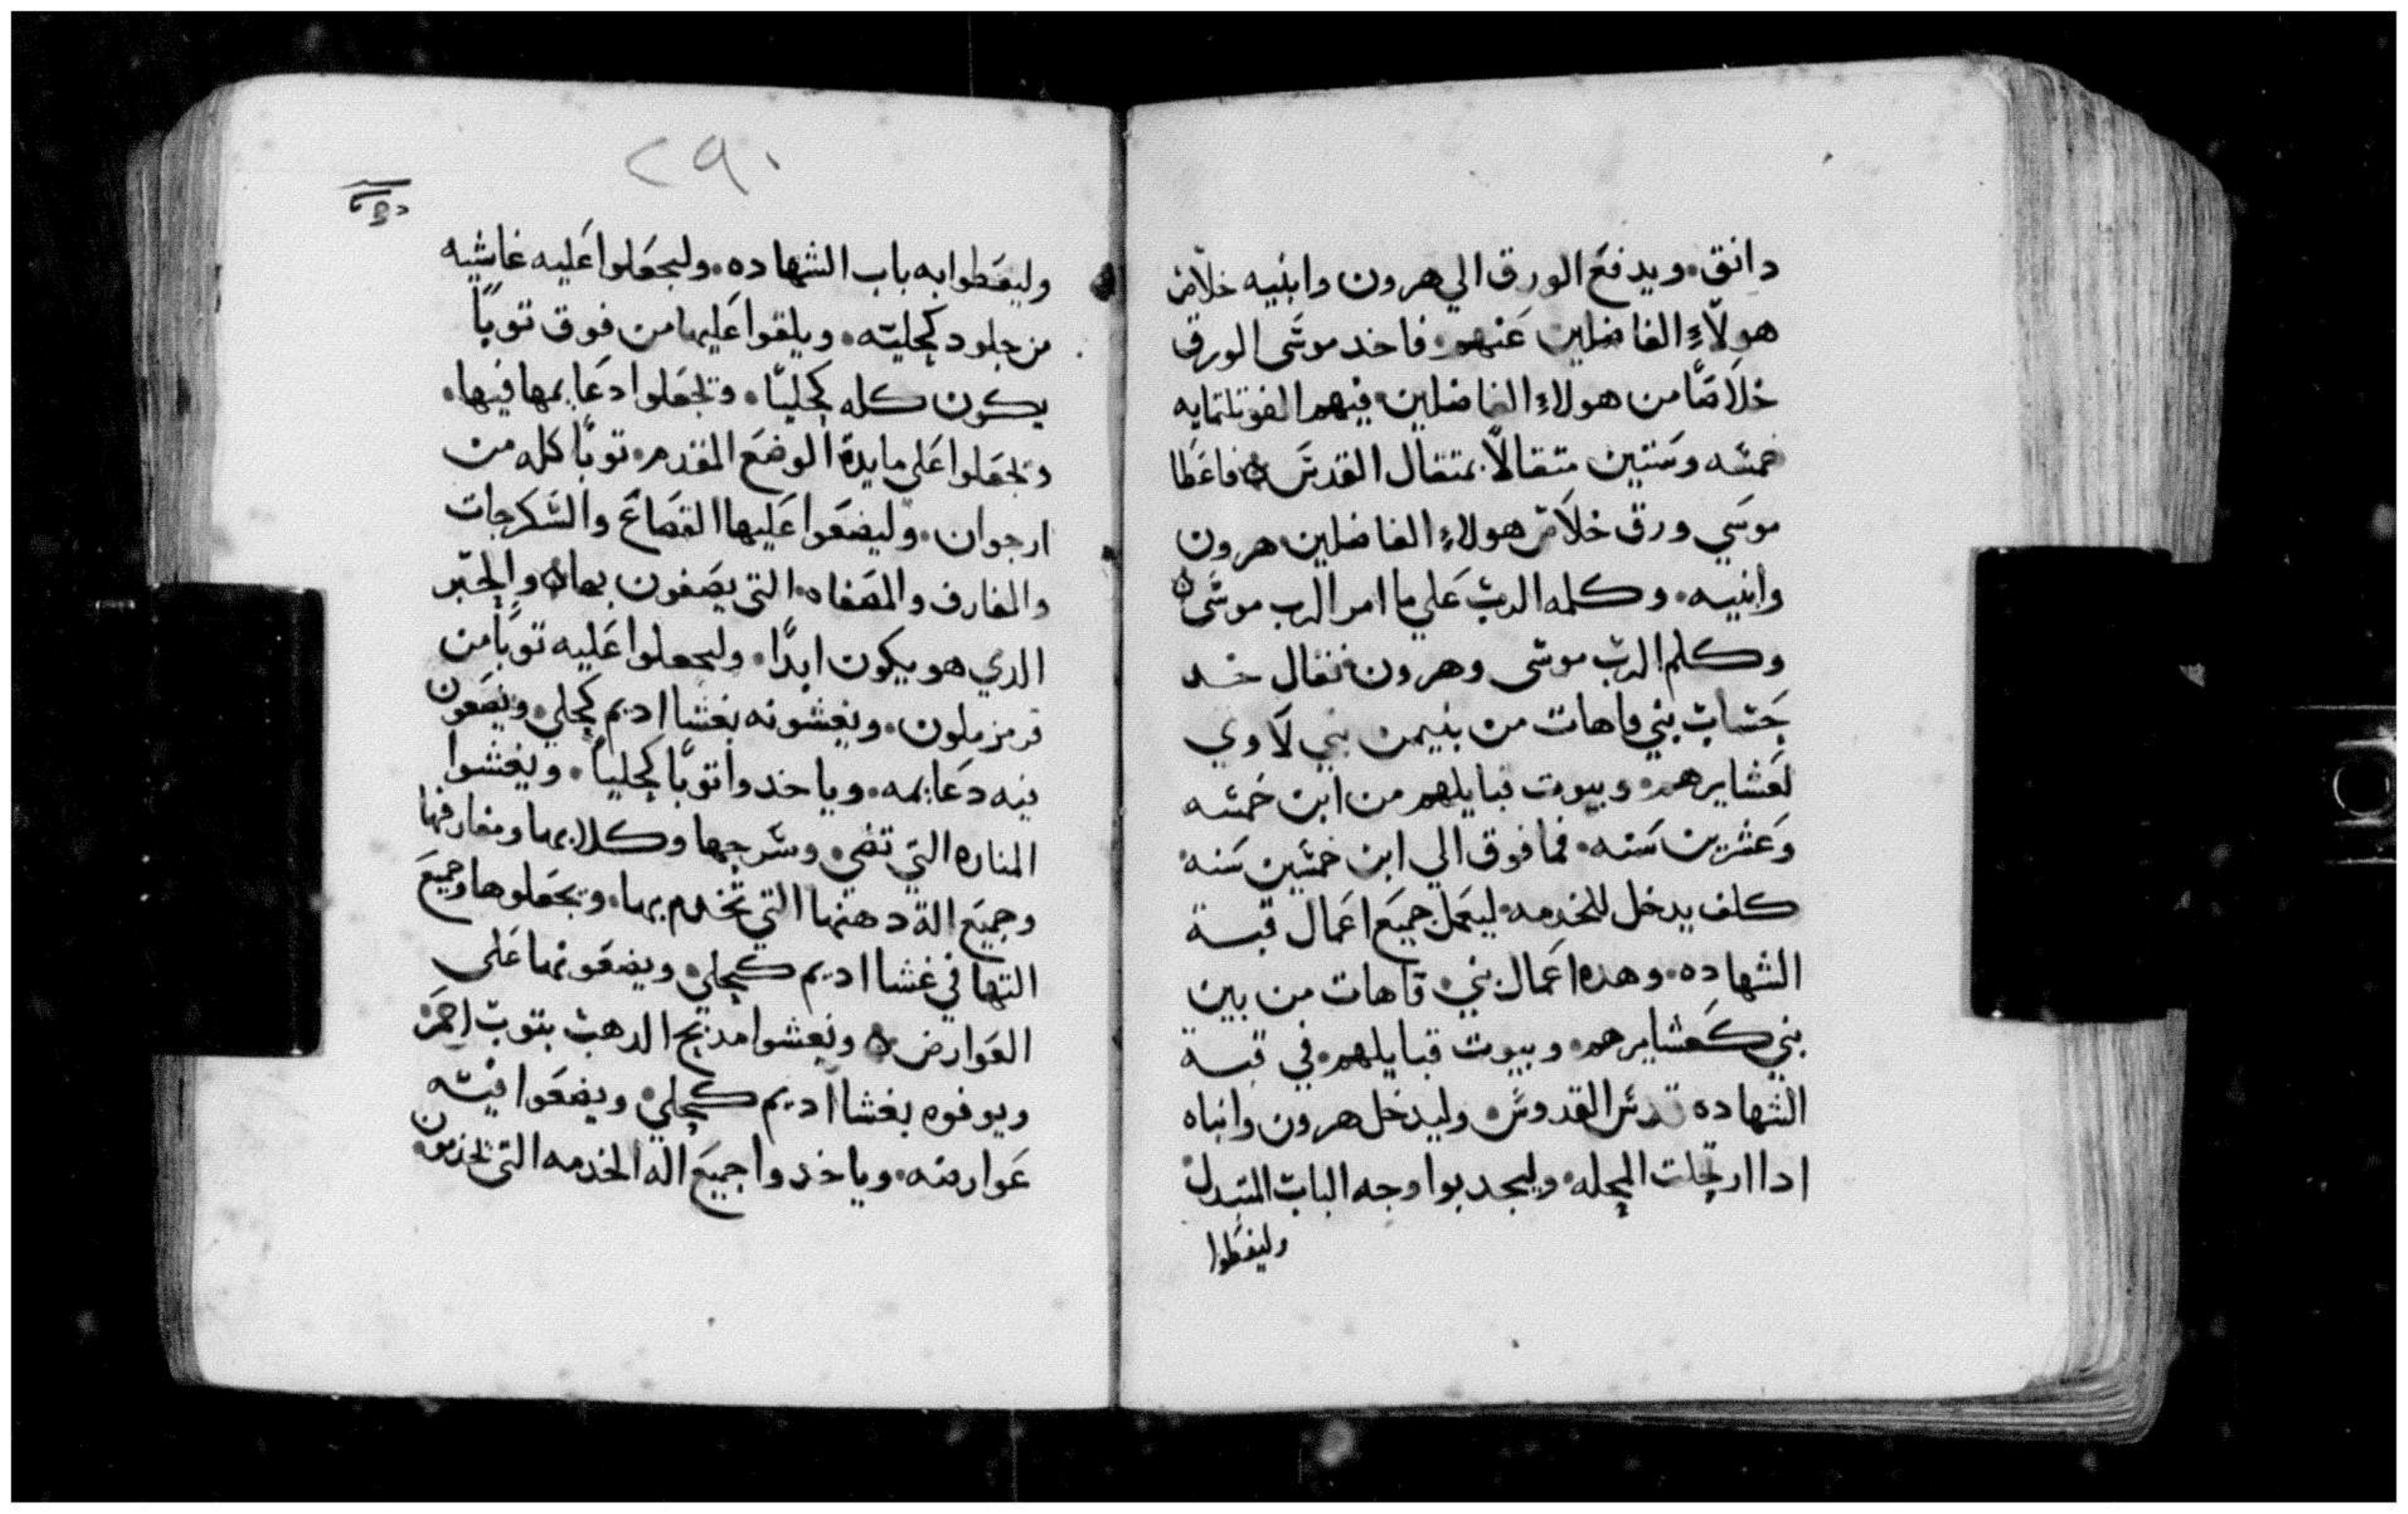 دانق. ويدفع الورق الي هرون وابنيه خلاص
هولاء الفاضلين عنهم. فاخد موسى الورق
خلاصا من هولاء الفاضلين فيهم الف وتلتمايه
خمسه وستين متقالا بمتقال القدس فاعطا
موسي ورق خلاص هولاء الفاضلين هرون
وابنيه. وكلمه الرب علي ما امر الرب موسى
وكلم الرب موسى وهرون فقال خد
حساب بني قاهات من بنيمن بني لاوي
لعشايرهم. وبيوت قبايلهم من ابن خمسه
وعشرين سنه. فما فوق الي ابن خمسين سنه
كلمن يدخل للخدمه ليعمل جميع اعمال قبة
الشهاده. وهده اعمال بني قاهات من بين
بني كعشايرهم. وبيوت قبايلهم في قبة
الشهاده قدس القدوس وليدخل هرون وابناه
ادا ارتحلت المحله. وليجدبوا وجه الباب المتبدل
وليغطوا
٢٩٠
وليغطوا به باب الشهاده. وليجعلوا عليه غاشيه
من جلود كحليه. ويلقوا عليها من فوق توبا
يكون كله كحليا. وتجعلوا دعايمها فيها.
وتجعلوا على مايدة الوضع المقدم. توبا كله من
ارجوان. وليضعوا عليها القصاع والسكرجات
والمغارف والمصفاه. التي يصفون بها والخبز
الدي هو يكون ابدا. وليجعلوا عليه توبا من
قرمز ملون. ويغشونه بغشا اديم كحلي. ويضعون
فيه دعايمه. وياخدوا توبا كحليا. ويغشوا
المناره التي تضي. وسرجها وكلابها ومغارفها
وجميع الة دهنها التي تخدم بها. ويجعلوها وجميع
التها في غشا اديم كحلي ويضعونها على
العوارض ويغشوا مدبح الدهب بتوب احمر
ويوفوه بغشا اديم كحلي. ويضعوا فيه
عوارضه. وياخدوا جميع اله الخدمه التي تخدمون